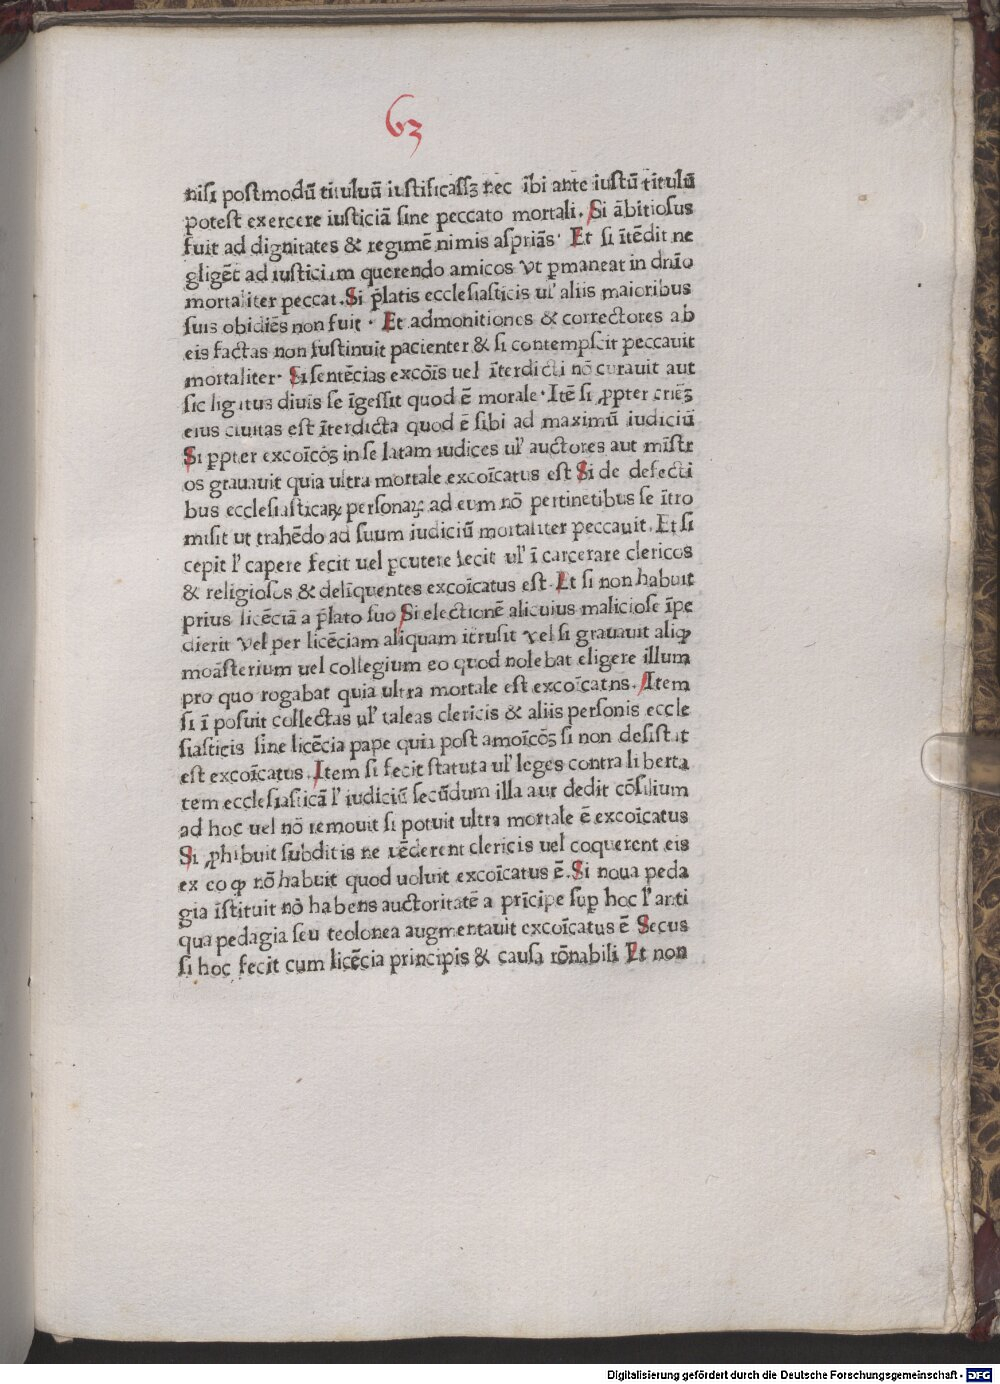 63
nisi postmodū tituluū iustificassꝫ nec ībi ante iustū titulū
potest exercere iusticiā sine peccato mortali. Si ābitiosus
fuit ad dignitates & regimē nimis aspriās· Et si ītēdit ne
gligēt ad iusticiam querendo amicos vt ꝑmaneat in dnīo
mortaliter peccat. Si p̄latis ecclesiasticis ul' aliis maioribus
suis obidiēs non fuit · Et admonitiones & correctores ab
eis factas non sustinuit pacienter & si contempsit peccauit
mortaliter· Si sentēcias excōīs uel īterdicti nō curauit aut
sic ligatus diuīs se īgessit quod ē morale· Itē si ꝓpter criēꝫ
eius ciuitas est īterdicta quod ē sibi ad maximū iudiciū
Si ꝓpter excoīcōꝫ in se latam iudices ul' auctores aut mīstr
os grauauit quia ultra mortale excoīcatus est Si de defecti
bus ecclesiasticaꝝ personaꝝ ad eum nō pertinetibus se ītro
misit ut trahēdo ad suum iudiciū mortaliter peccauit. Et si
cepit l' capere fecit uel ꝑcutere fecit ul' ī carcerare clericos
& religiosos & delīquentes excoīcatus est. Et si non habuit
prius licēciā a p̄lato suo Si electionē alicuius maliciose īpe
dierit vel per licēciam aliquam ītrusit vel si grauauit aliqꝫ
moāsterium uel collegium eo quod nolebat eligere illum
pro quo rogabat quia ultra mortale est excoīcatns. Item
si ī posuit collectas ul' taleas clericis & aliis personis eccle
siasticis sine licēcia pape quia post amoīcōꝫ si non desistat
est excoīcatus. Item si fecit statuta ul' leges contra liberta
tem ecclesiasticā l' iudiciū secūdum illa aut dedit cōsilium
ad hoc uel nō remouit si potuit ultra mortale ē excoīcatus
Si ꝓhibuit subditis ne uēderent clericis uel coquerent eis
ex eo ꝙ nō habuit quod uoluit excoīcatus ē. Si noua peda
gia īstituit nō habens auctoritatē a prīcipe suꝑ hoc l' anti
qua pedagia seu teolonea augmentauit excoīcatus ē Secus
si hoc fecit cum licēcia principis & causa rōnabili Et non
Digitalisierung gefördert durch die Deutsche Forschungsgemeinschaft - DFG